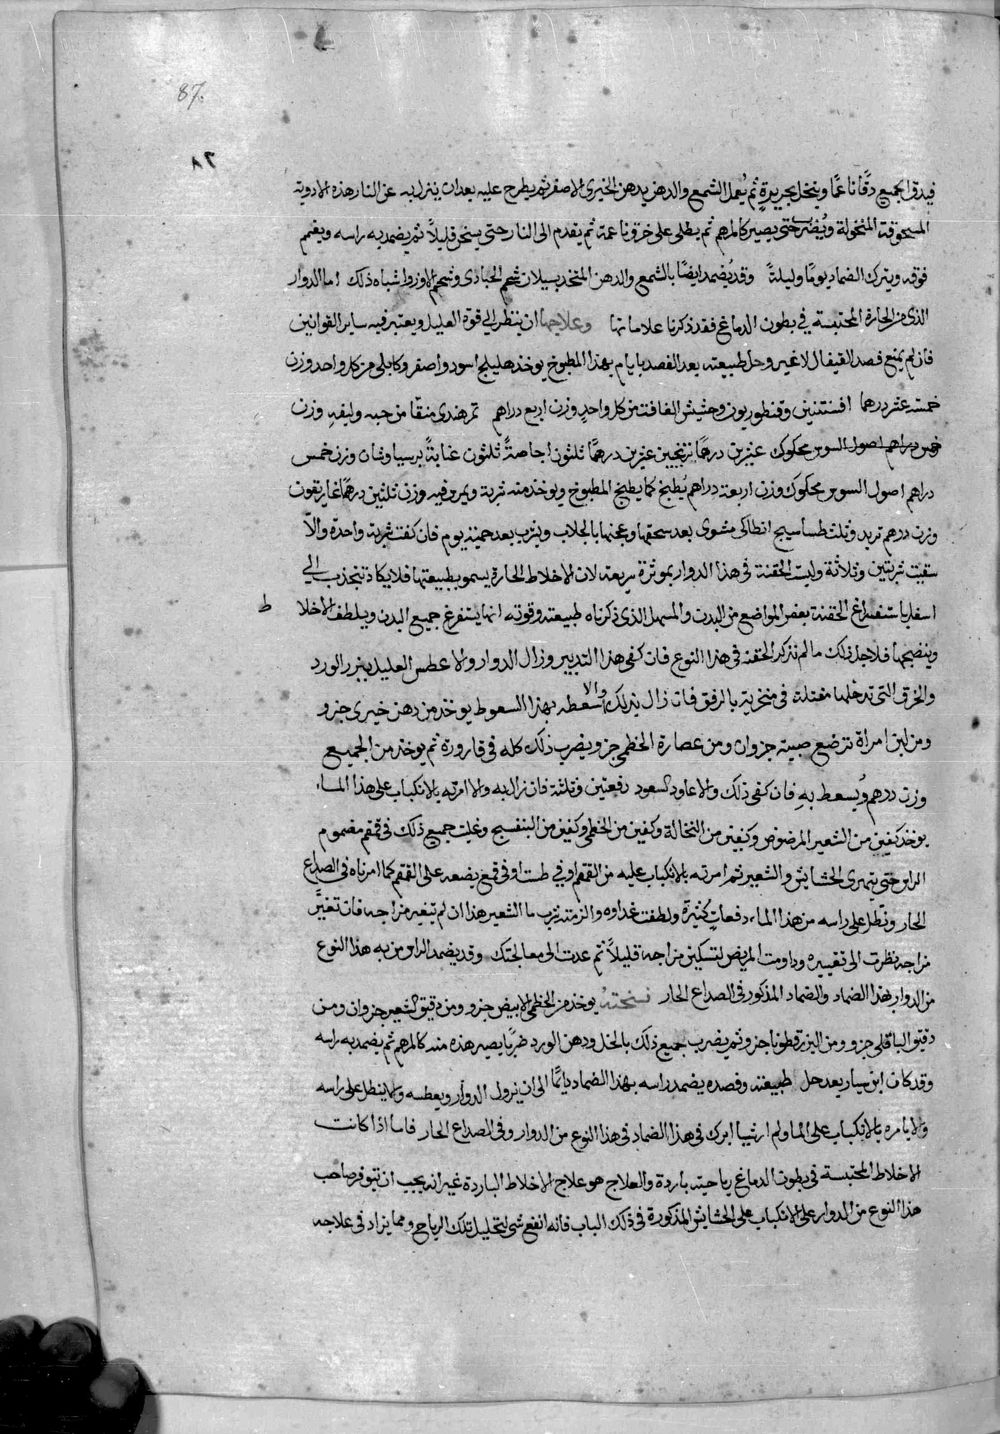 87.
٨٣
فيدق الجميع دقًا ناعمًا وينخل بحريرةٍ ثم يُعمل الشمع والدهن بدهن الخيرى الاصفر ثم يطرح عليه بعد ان ينزل به عن النار هذه الادوية
المسحوقة المنخولة ويُضرب حتى يصير كالمرهم ثم يطلى على خرقة ناعمة ثم يقدم الى النار حتى يسخن قليلاً ثم يضمد به راسه ويغمم
فوقه ويترك الضماد يومًا وليلةً وقد يُضمد ايضًا بالشمع والدهن المتخذ بسيلان شحم الحبارى وشحم الاوز واشباه ذلك اما الدوار
الذى من الحارة المحتبسة في بطون الدماغ فقد ذكرنا علاماتها وعلاجها ان ينظر الى قوة العليل ويعتبر فيه ساير القوانين
فان لم يمنع فصد القيفال لا غير وحل طبيعته بعد الفصد بايام بهذا المطبوخ يوخذ هليلج اسود واصفر وكابلى من كل واحد وزن
خمسة عشر درهما افسنتين وقنطوريون وحشيش الغافت من كل واحدٍ وزن اربع دراهم تمر هندى منقّا من حبه وليفهِ وزن
خمس دراهم اصول السوس محكوك عشرين درهمًا ترنجبين عشرين درهمًا ثلثون اجاصةً ثلثون عنابةً برسياوشان وزن خمس
دراهم اصول السوس محكوك وزن اربعة دراهم يُطبخ كما يطبخ المطبوخ ويوخذ منه شربة ويمرس فيه وزن ثلثين درهمًا غاريقون
وزن درهم تربد وثلث طساسيج انطاكى مشوى بعد سحقها وعجنها بالجلاب ويشرب بعد حمية يوم فان كفت شربة واحدة والّا
سقيت شربتين وثلاثة وليست الحقنة فى هذا الدوار بموثرة سريعة لان الاخلاط الحارة يسمو بطبيعتها فلا يكاد تنجذب الى
اسفل باستفراغ الحقنة بعض المواضع من البدن والمسهل الذى ذكرناه طبيعته وقوته انها يستفرغ جميع البدن ويلطف الاخلا ط
وينضجها فلاجل ذلك ما لم نذكر الحقنة فى هذا النوع فان كفى هذا التدبير وزال الدوار والا عطس العليل ببزر الورد
والخرق التى تدخلها مفتلة فى منخريه بالرفق فان زال بذلك والا اسعطه بهذا السعوط يوخذ من دهن خيرى جزو
ومن لبن امراة ترضع صبية جزوان ومن عصارة الخطمى جزو يضرب ذلك كله فى قارورة ثم يوخذ من الجميع
وزن درهم ويُسعط بهِ فان كفى ذلك والا عاود السعود دفعتين وثلثة فان زال به والا امرته بالانكباب على هذا الماء
يوخذ كفين من الشعير المرضوض وكفين من النخالة وكفين من الخطمى وكفين من البنفسج وغليت جميع ذلك فى قمقم مضموم
الراس حتى يتهرى الحشايش والشعير ثم امرته بالانكباب عليه من القمقم او في طست او فى قمع يضعه على القمقم كما امرناه فى الصداع
الحار ونطل على راسه من هذا الماء دفعاتٍ كثيرة ولطفت غداوه والزمته شرب ما الشعير هذا ان لم يتغير مزاجه فان تغيَّر
مزاجه نظرت الى تغييره وداومت المريض لتسكين مزاجه قليلاً ثم عدت الى معالجتك وقد يضمد الراس من به هذا النوع
من الدوار بهذا الضماد والضماد المذكور فى الصداع الحار نسخته يوخذ من الخطمى الابيض جزو ومن دقيق الشعير جزوان ومن
دقيق الباقلى جزو ومن البزرقطونا جزو ثم يضرب جميع ذلك بالخل ودهن الورد ضربًا يصير هذه منه كالمرهم ثم يضمد به راسه
وقد كان ابن سيار بعد حل طبيعته وفصده يضمد راسه بهذا الضماد دايمًا الى ان يزول الدوار ويعطسه وكلما ينطل على راسه
ولا يامره بالانكباب على الما ولم ار شيا ابرك فى هذا الضماد فى هذا النوع من الدوار وفى الصداع الحار فاما اذا كانت
الاخلاط المحتبسة فى بطون الدماغ رياحية باردة والعلاج هو علاج الاخلاط الباردة غير انه يجب ان يتوفر صاحب
هذا النوع من الدوار على الانكباب على الحشايش المذكورة فى ذلك الباب فانه انفع شى لتحليل تلك الرياح ومما يزاد فى علاجه